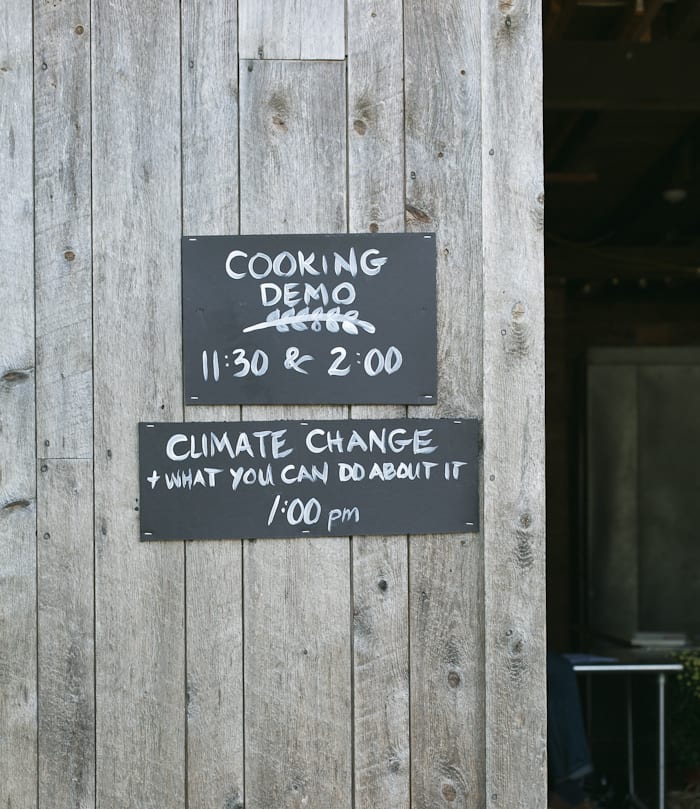 COOKING
DEMO
11:30 & 2:00
CLIMATE CHANGE
+ WHAT YOU CAN DO ABOUT IT
1:00 pm